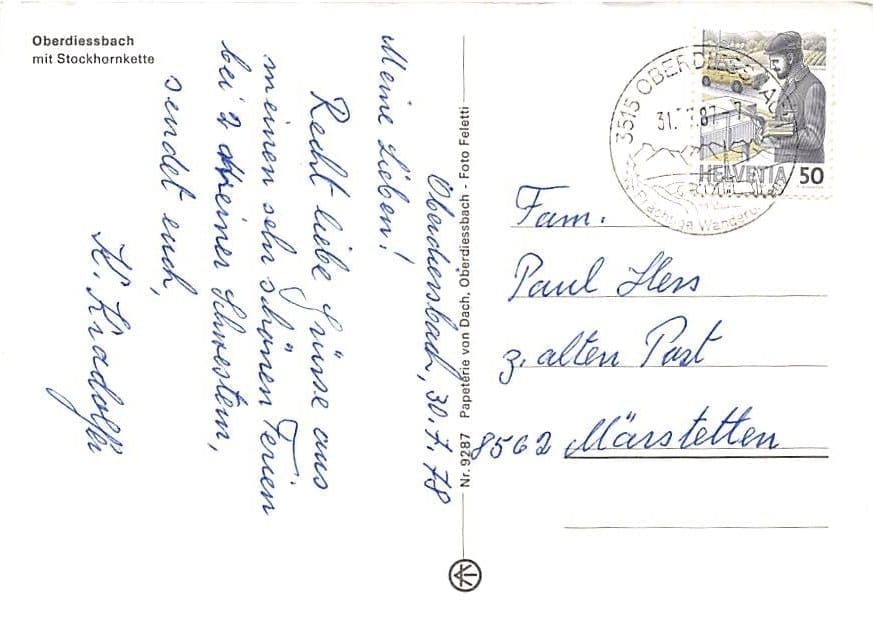 Oberdiessbach
mit Stockhornkette
Oberdiessbach, 30.7.78
Meine Lieben!
Recht liebe Grüsse aus
meinen sehr schönen Ferien
bei meiner Schwestern,
sendet euch,
K. Kradolfer
Nr. 9287 Papeterie von Dach, Oberdiessbach - Foto Feletti
3515 OBERDIESSBACH
31. 7.87-7
HELVETIA 50
Fam.
Paul Hess
z. alten Post
8562 Märstetten